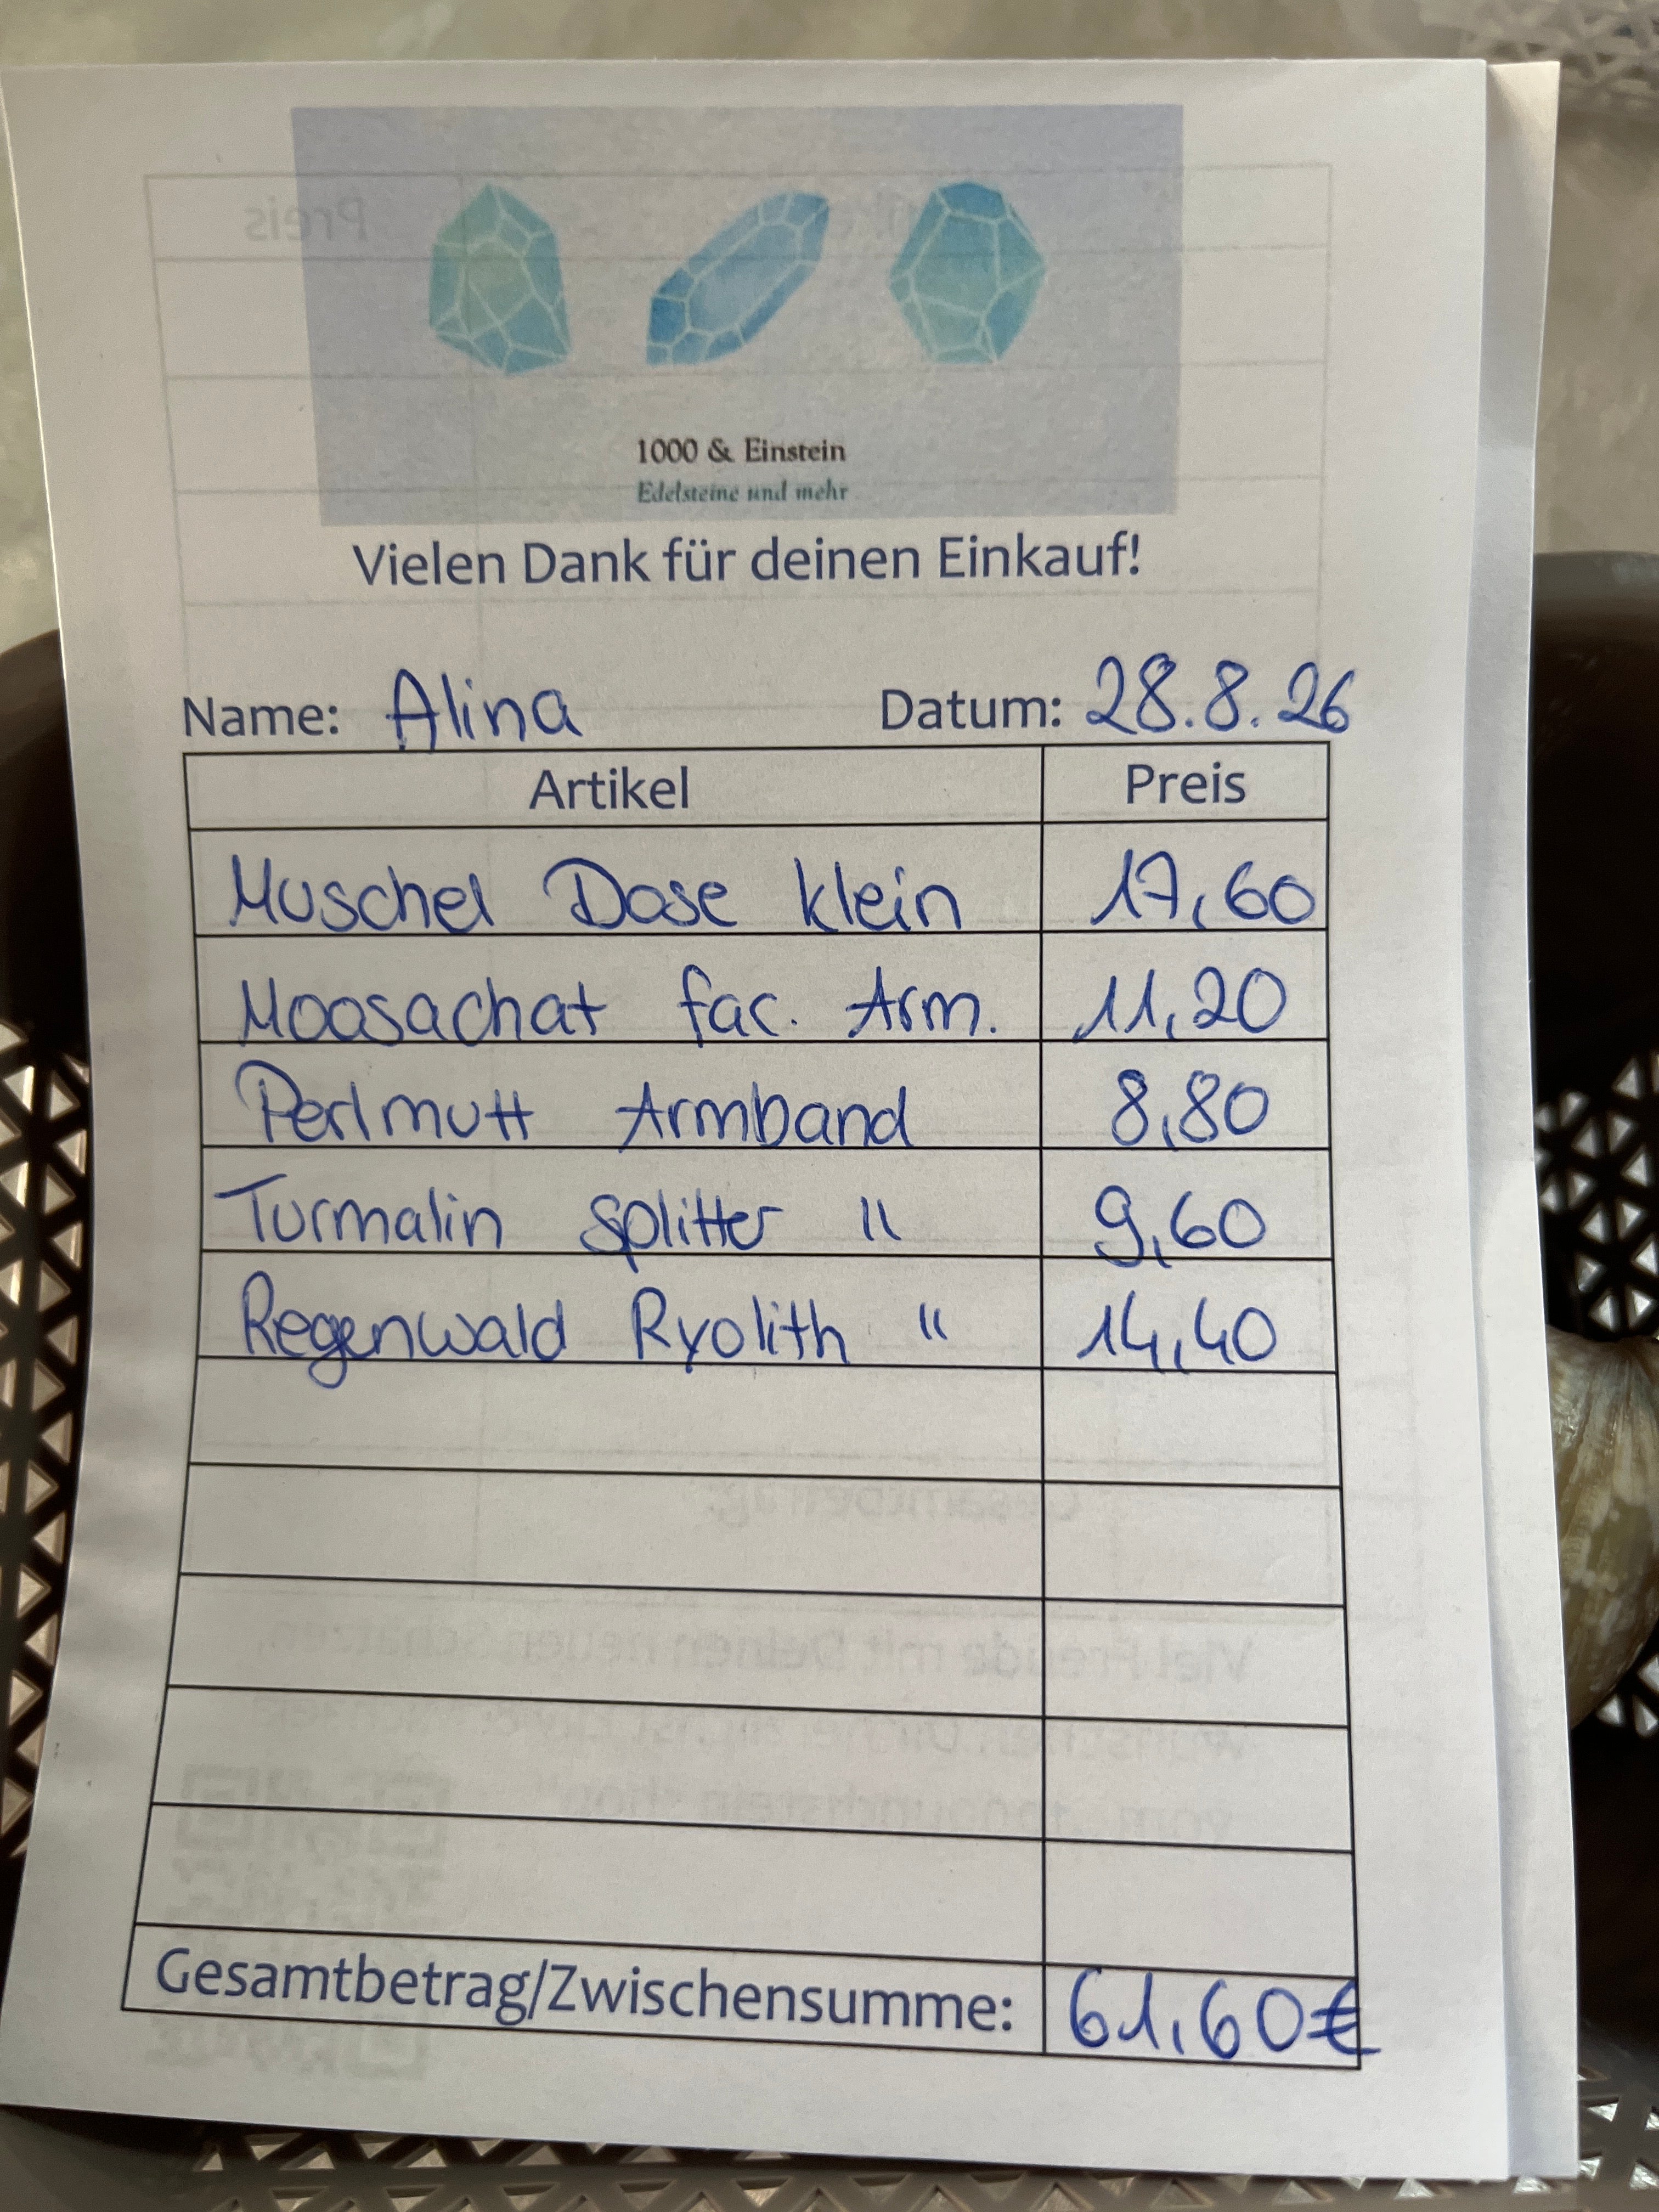 1000 & Einstein
Edelsteine und mehr
Vielen Dank für deinen Einkauf!
Name: Alina Datum: 28.8.26
Artikel Preis
Muschel Dose klein 17,60
Moosachat fac. Arm. 11,20
Perlmutt Armband 8,80
Turmalin Splitter " 9,60
Regenwald Ryolith " 14,40
Gesamtbetrag/Zwischensumme: 61,60€